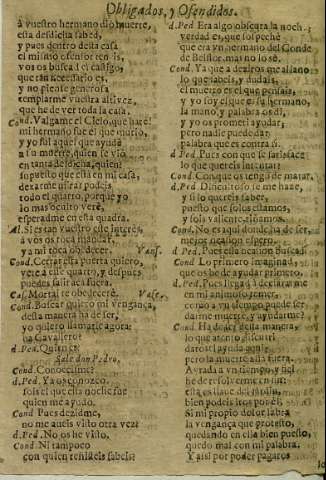 Obligados, y Ofendidos.
à vuestro hermano diò muerte,
esta desdicha sabed,
y pues dentro desta casa
el mismo ofensor teneis,
vos os buscad el castigo,
que tan necessario es,
y no pleite generosa
templarme vuestra altivez,
que he de ver toda la casa.
Cond. Valgame el Cielo, que harè!
mi hermano fue el que murio,
y yo fui aquel que ayudà
a su muerte, quien se vio
en tanta desdicha, quien!
supuesto que està en mi casa,
dexarme mirar podeis
todo el quarto, porque yo
lo mas oculto verè,
esperadme en esta quadra.
Al. Si es tan vuestro este interès,
à vos os toca mandar,
y a mi toca obedecer. Vans.
Cond. Cerrar esta puerta quiero,
verè a este quarto, y despues
puedes salir acà fuera.
Cas. Mortal te obedecerè. Vase.
Cond. Buscar quiero mi vengança,
desta manera ha de ser,
yo quiero llamarle agora:
ha Cavallero?
d. Ped. Quien es?
Sale don Pedro.
Cond. Conoceisme?
d. Ped. Ya os conozco.
sois el que esta noche fue
quien me ayudò.
Cond. Pues dezidme,
no me aueis visto otra vez?
d. Ped. No os he visto.
Cond. Ni PEDRO
con quien reñisteis sabeis?
d. Ped. Era algo obscura la noche;
verdad es, que sospechè
que era vn hermano del Conde
de Belflor, mas no lo sè.
Cond. Ya que a deziros me allano
lo que sabeis, y dudais,
el muerto es el que pensais,
y yo soy el que es su hermano,
la mano, y palabra os di,
y yo os prometi ayudar;
pero nadie puede dar
palabra que es contra si.
d. Ped. Pues con que se satisface
lo que quereis intentar?
Cond. Con que os tengo de matar.
d. Ped. Dificultoso se me haze,
y si lo quereis saber,
puesto que solos estamos,
y sois valiente, riñamos.
Cond. No es aqui donde ha de ser,
mejor ocasion espero.
d. Ped. Pues essa ocasion buscad.
Cond. Lo primero imaginad,
que os he de ayudar primero.
d. Ped. Pues llegad à declararme
en mi animoso temer,
como a vn tiempo puede ser
darme muerte, y ayudarme?
Cond. Ha de ser desta manera,
lo que atento discurri
daros la ayuda aqui,
pero la muerte allà fuera.
Ayuda a vn tiempo, y fiel
he de resolverme en vn:
esta es llave del jardin,
bien podeis iros por èl.
Si mi propio dolor labra
la vengança que protesto,
quedando en ella bien puesto,
quedo mal con mi palabra.
Y assi por poder pagaros